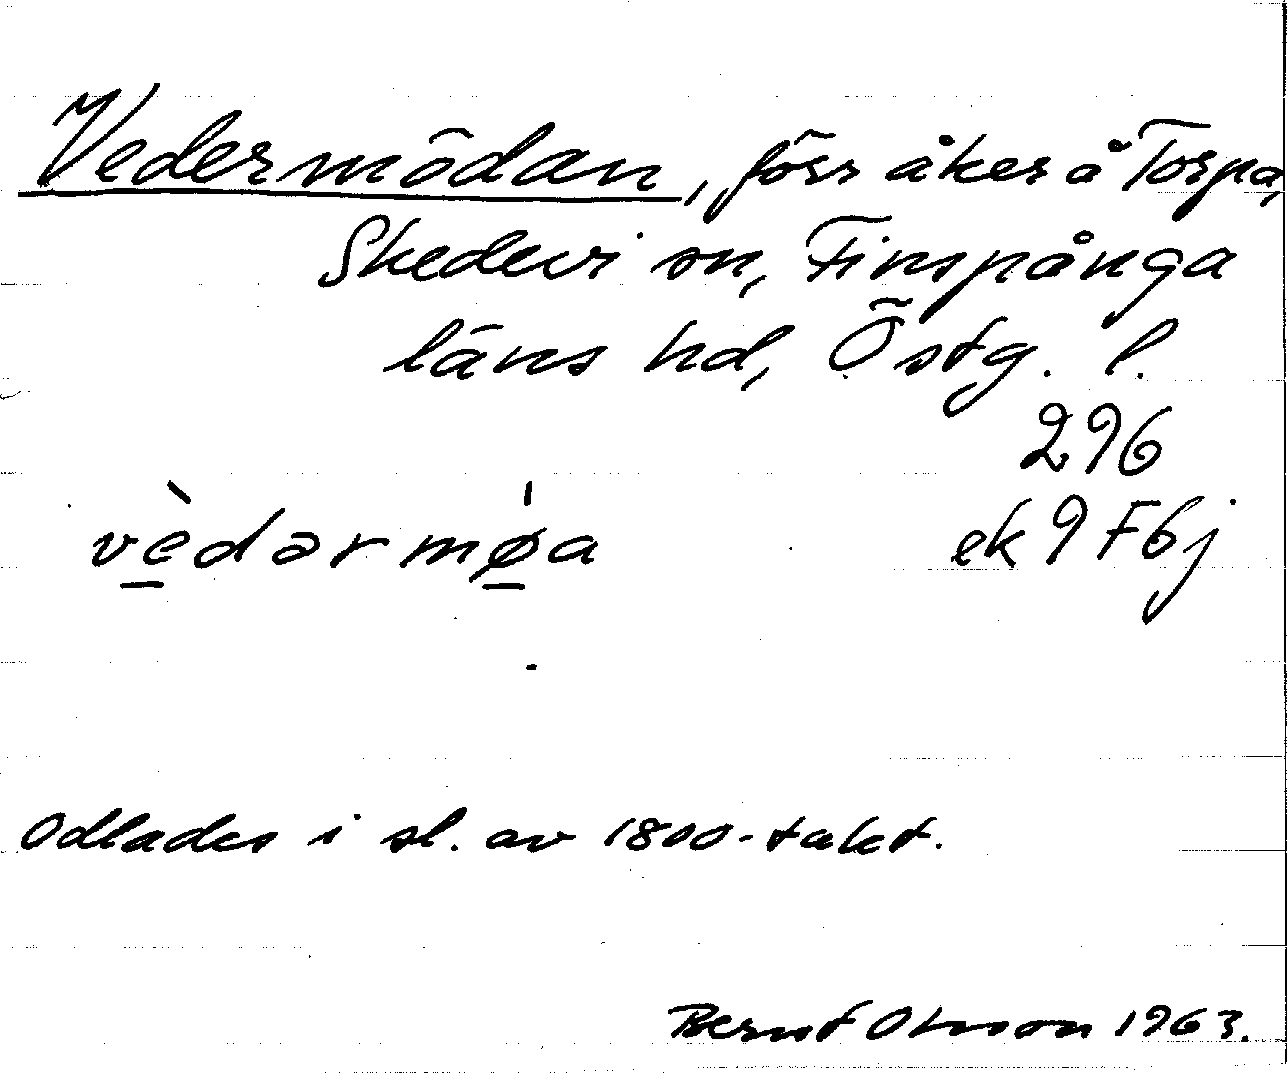 Vedermödan, förr åker å Torpa,
Skedevi sn, Finspånga
läns hd, Östg. l.
296
vèdərmø̍a ek 9 F6j
Odlades i sl. av 1800-talet.
Bernt Olsson 1963.